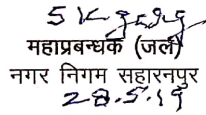 महाप्रबन्धक (जल)
नगर निगम सहारनपुर
28.5.19